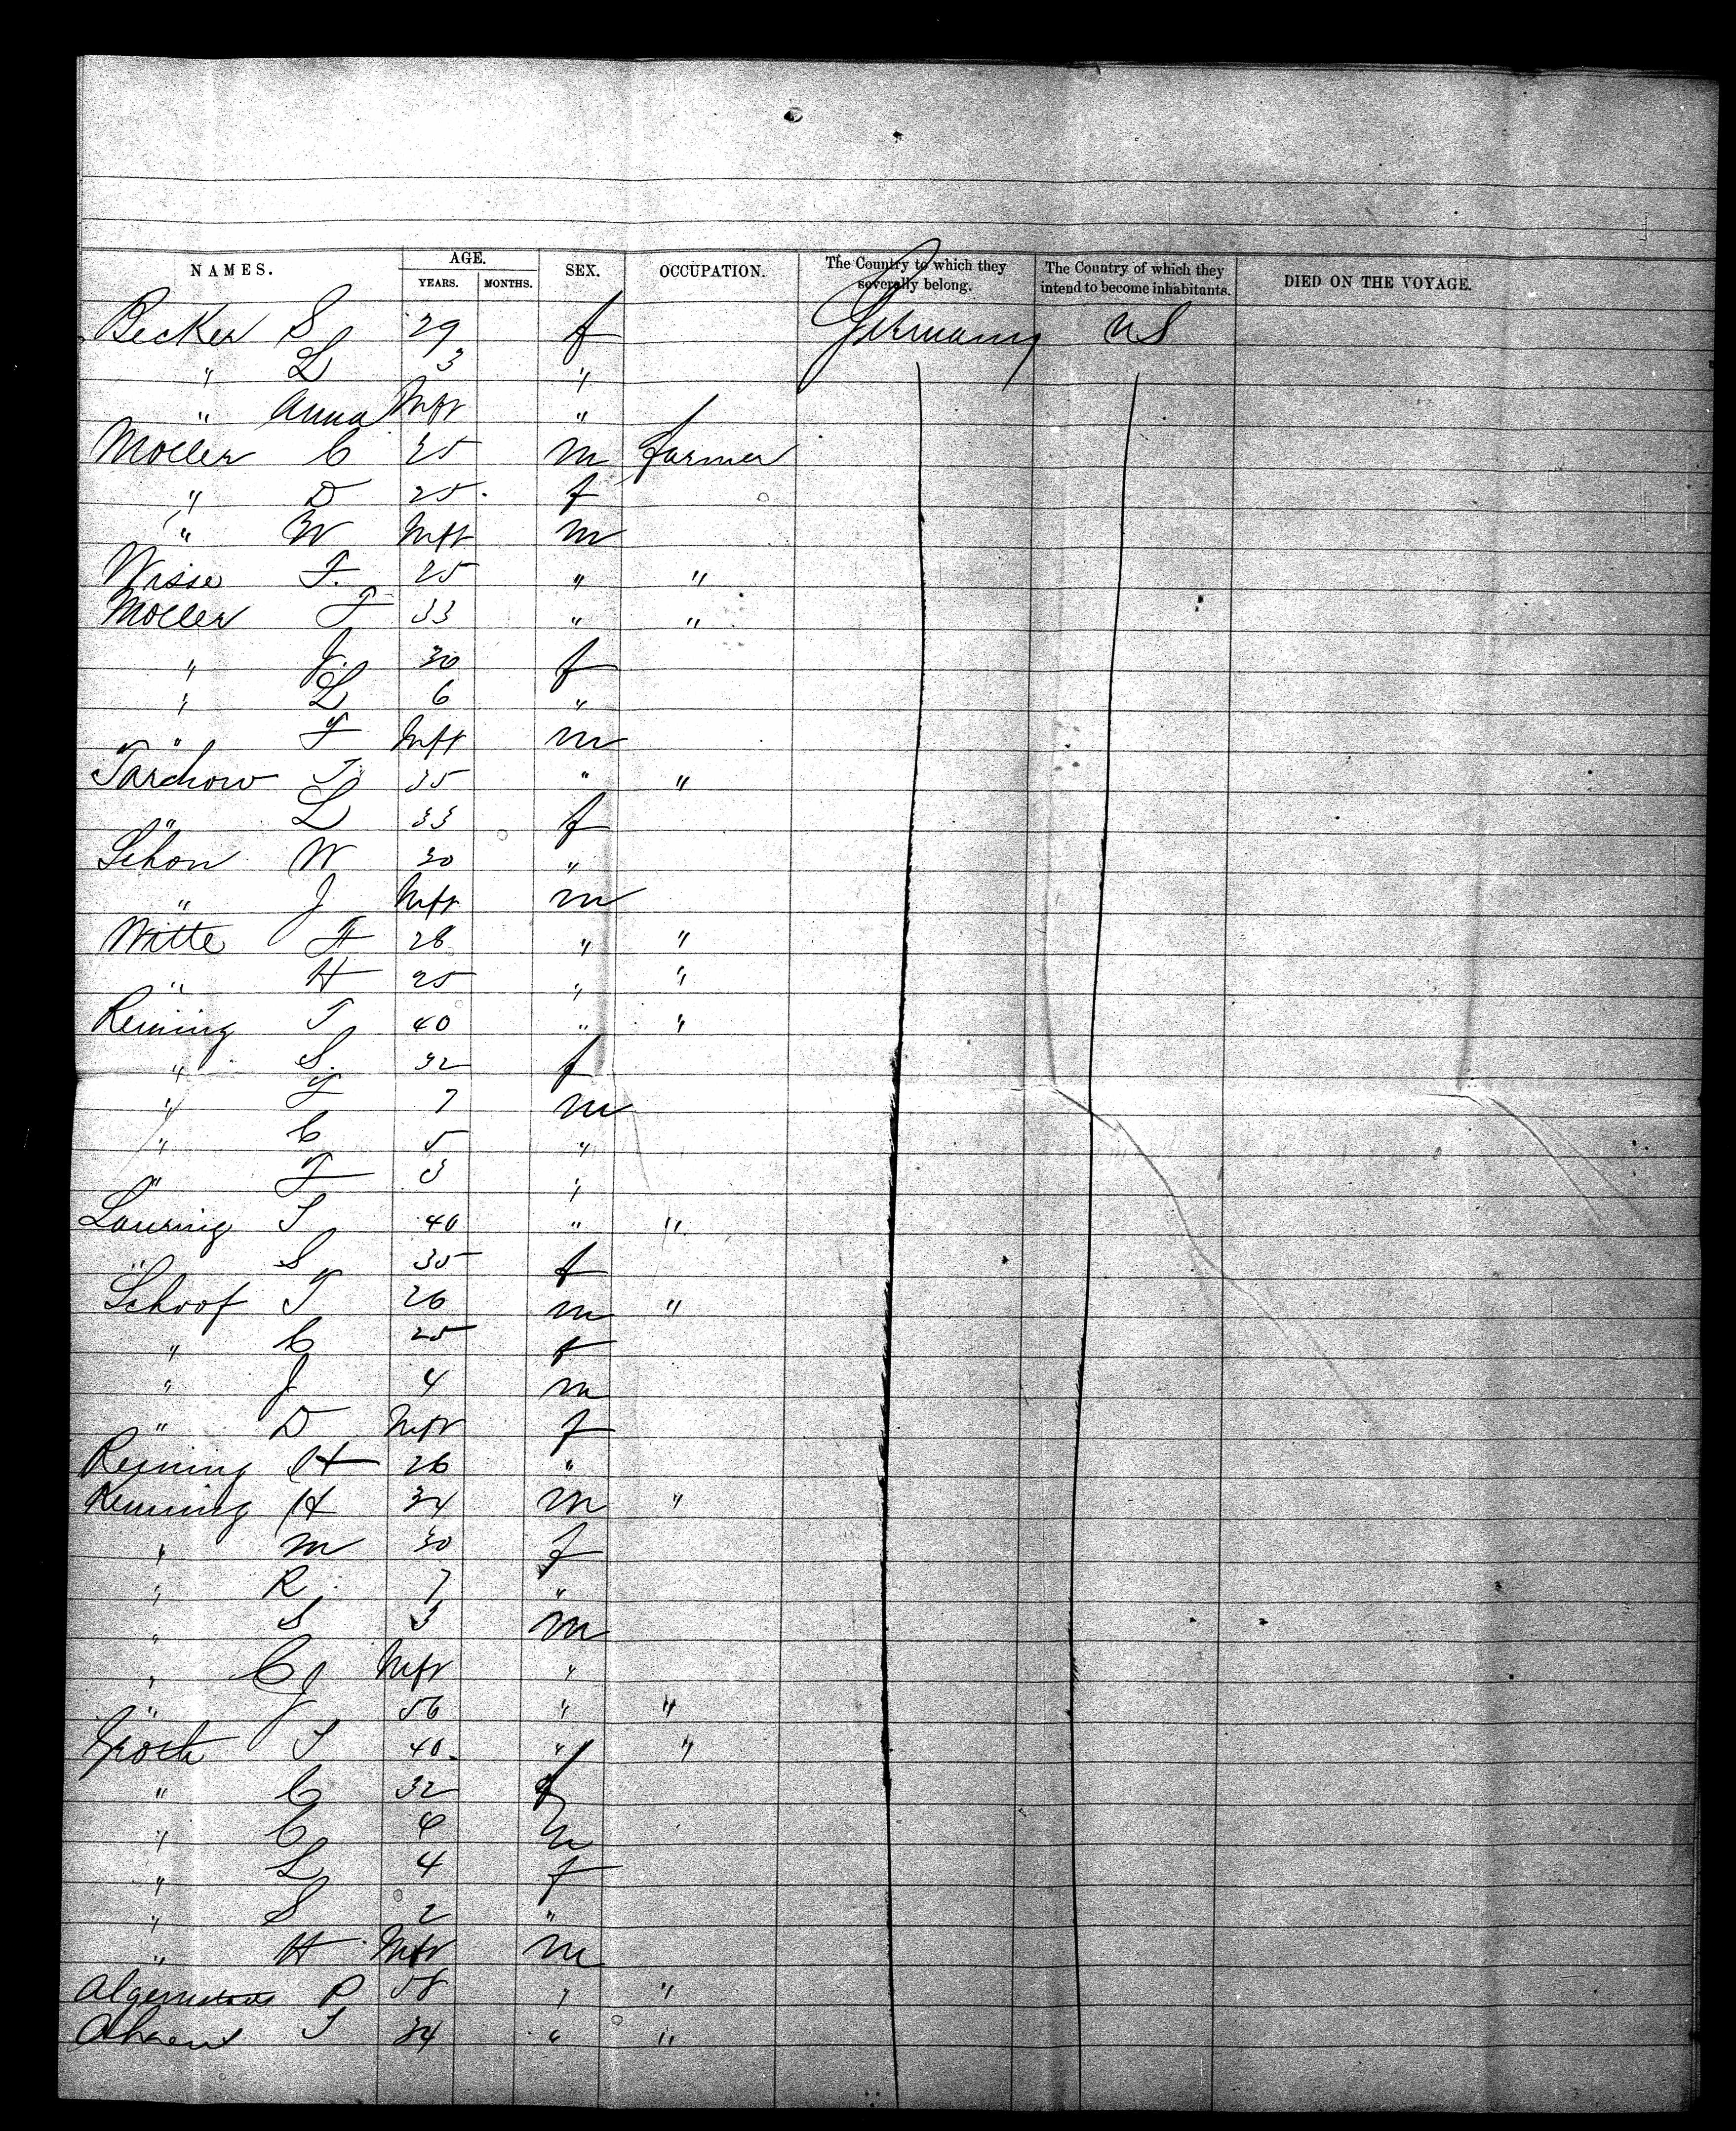 NAMES. AGE. YEARS. MONTHS. SEX. OCCUPATION. The Country to which they severally belong. The Country of which they intend to become inhabitants. DIED ON THE VOYAGE.
Becker S 29 f Germany US
" L 3 "
" Anna Inft "
Moller C 25 m farmer
" D 25 f
" W Inft m
Wisse F. 25 " "
Moller F 33 " "
" J 30 f
" L 6 "
" F Inft m
Tarchow J 35 " "
" L 33 f
Schon W 30 "
" J Inft m
Witte F 28 " "
" H 25 " "
Reining J 40 " "
" S. 32 f
" F 7 m
" C 5 "
" F 3 "
Lauring J 40 " "
" S 35 f
Schoof J 26 m "
" C 25 f
" J 4 m
" D Inft f
Reining H 26 "
Reining H 34 m "
" M 30 f
" R 7 "
" S 3 m
" C Inft "
" J 56 " "
J 40 " "
" C 32 f
" C 6 m
" L 4 f
" S 2 "
" H Inft m
P 58 " "
Ahrens J 34 " "